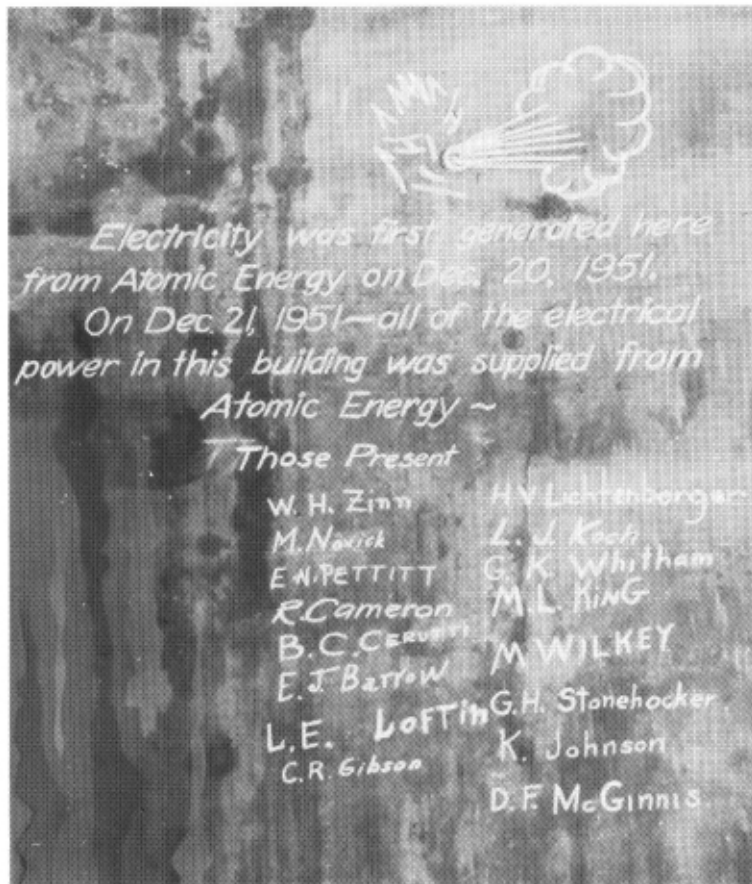 Electricity was first generated here
from Atomic Energy on Dec. 20, 1951.
On Dec. 21, 1951—all of the electrical
power in this building was supplied from
Atomic Energy ~
Those Present
W. H. Zinn
M. Novick
E. N. PETTITT
R. Cameron
B. C. CERUTTI
E. J. Barrow
L. E. LOFTin
C. R. Gibson
H V Lichtenberger
L. J. Koch
G. K. Whitham
M. L. KinG
M WILKEY
G. H. Stonehocker.
K. Johnson
D. F. McGinnis